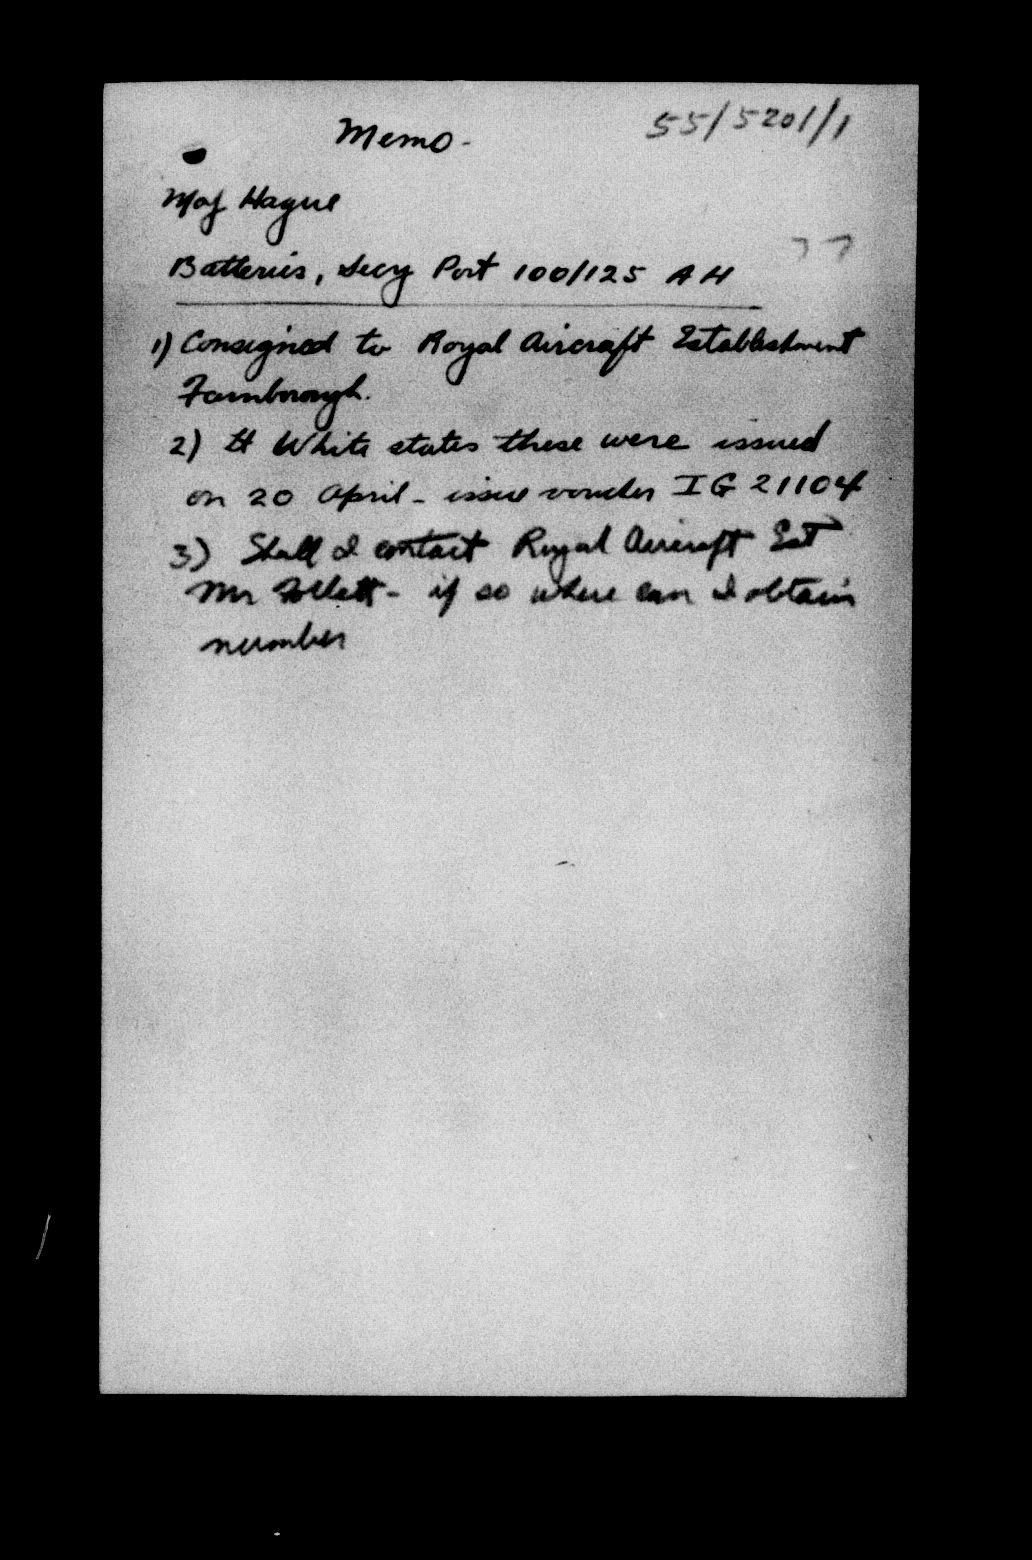 Memo -
55/5201/1
Maj Hague
77
Batteries, Secy Port 100/125 AH
1) Consigned to Royal Aircraft Establishment
Farnborough.
2) Lt White states these were issued
on 20 April - issue voucher IG 21104
3) Shall I contact Royal Aircraft Est
Mr Follett - if so where can I obtain
number